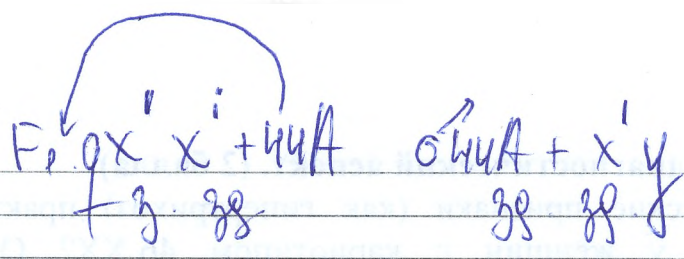 F₁ ♀ x ' x ' + 44A ♂ 44A + x ' y
з. зд. зд зд.